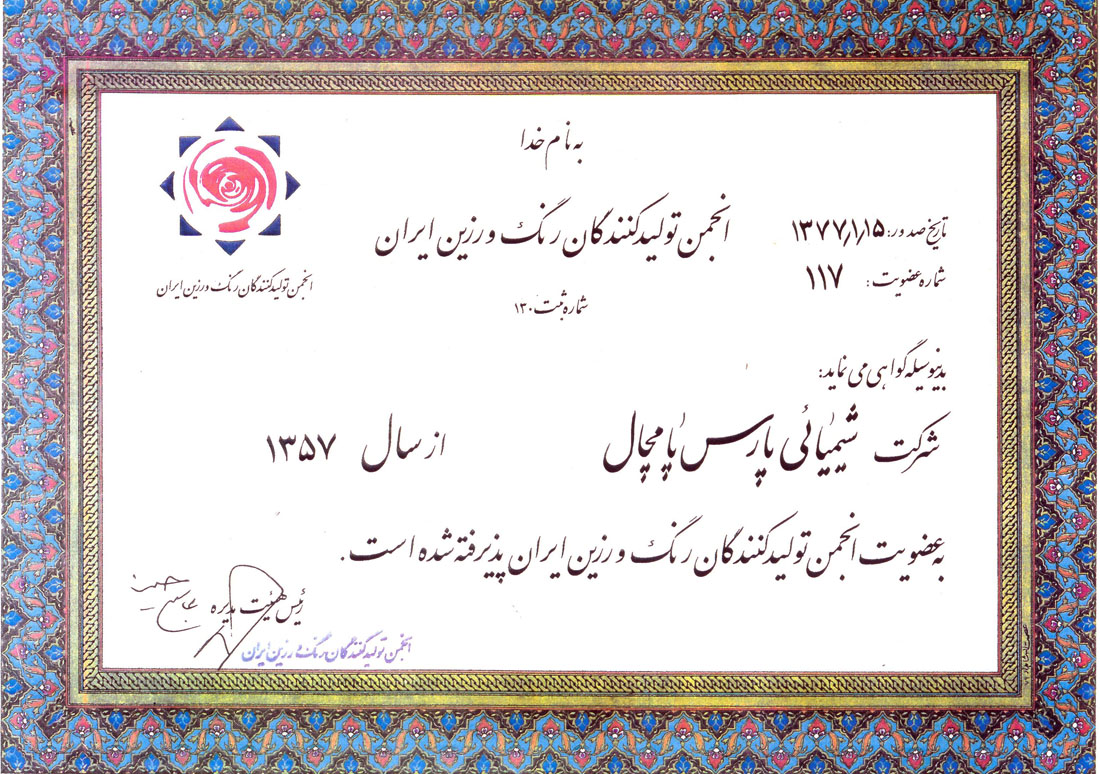 به نام خدا
انجمن تولیدکنندگان رنگ و رزین ایران
شماره ثبت ۱۳۰
تاریخ صدور: ۱۳۷۷/۱/۱۵
شماره عضویت: ۱۱۷
انجمن تولیدکنندگان رنگ و رزین ایران
بدینوسیله گواهی می نماید:
شرکت شیمیائی پارس پامچال از سال ۱۳۵۷
به عضویت انجمن تولیدکنندگان رنگ و رزین ایران پذیرفته شده است.
رئیس هیئت مدیره
انجمن تولیدکنندگان رنگ و رزین ایران